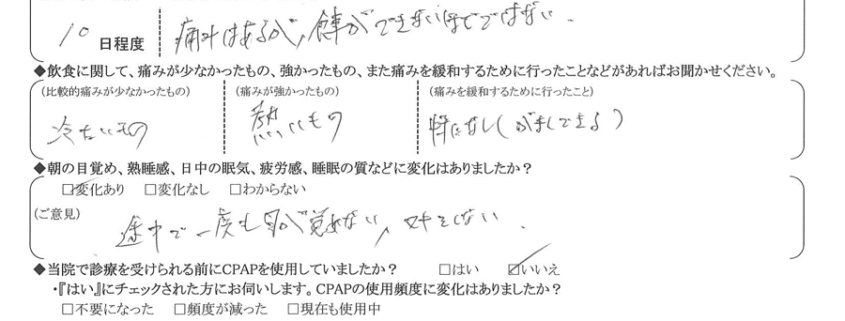 10日程度 痛みはあるが、食事ができないほどではない。
◆飲食に関して、痛みが少なかったもの、強かったもの、また痛みを緩和するために行ったことなどがあればお聞かせください。
(比較的痛みが少なかったもの) (痛みが強かったもの) (痛みを緩和するために行ったこと)
冷たいもの 熱いもの 特になし(がまんできる)
◆朝の目覚め、熟睡感、日中の眠気、疲労感、睡眠の質などに変化はありましたか?
☑変化あり □変化なし □わからない
(ご意見)
途中で一度も目が覚めない、
◆当院で診療を受けられる前にCPAPを使用していましたか? □はい ☑いいえ
・『はい』にチェックされた方にお伺いします。CPAPの使用頻度に変化はありましたか?
□不要になった □頻度が減った □現在も使用中